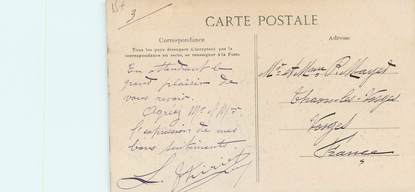 15f
3
CARTE POSTALE
Correspondance
Tous les pays étrangers n'acceptent pas la
correspondance au recto, se renseigner à la Poste
Adresse
En attendant le
grand plaisir de
vous revoir.
Agréez Mr et Mme
l'expression de mes
bons sentiments.
L.
Mr & Mme R. Mayet
Thaon-les-Vosges
Vosges
France